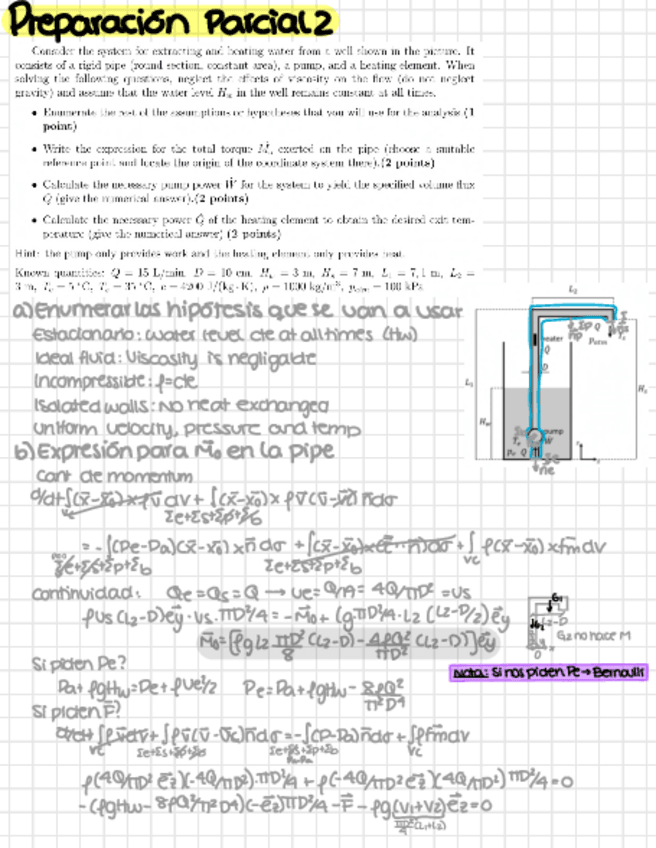 Preparación Parcial 2
Consider the system for extracting and heating water from a well shown in the picture. It
consists of a rigid pipe (round section, constant area), a pump, and a heating element. When
solving the following questions, neglect the effects of viscosity on the flow (do not neglect
gravity) and assume that the water level Hw in the well remains constant at all times.
• Enumerate the rest of the assumptions or hypotheses that you will use for the analysis (1
point)
• Write the expression for the total torque M⃗o exerted on the pipe (choose a suitable
reference point and locate the origin of the coordinate system there).(2 points)
• Calculate the necessary pump power Ẇ for the system to yield the specified volume flux
Q (give the numerical answer).(2 points)
• Calculate the necessary power Q̇ of the heating element to obtain the desired exit tem-
perature (give the numerical answer) (2 points)
Hint: the pump only provides work and the heating element only provides heat.
Known quantities: Q = 15 L/min, D = 10 cm, Hw = 3 m, Hs = 7 m, L1 = 7,1 m, L2 =
3 m, = 5 °C, = 35 °C, c = 4200 J/(kg·K), ρ = 1000 kg/m³, patm = 100 kPa
a) Enumerar las hipótesis que se van a usar
Estacionario: water level cte at all times (Hw)
Ideal fluid: Viscosity is negligable
Incompressible: ρ=cte
Isolated walls: No heat exchanged
Uniform velocity, pressure and temp
b) Expresión para M⃗o en la pipe
Cant de momentum
d/dt∫(x̄-x̄o)×ρv̄ dv + ∫(x̄-x̄o)×ρv̄(v̄-v̄c)n̄dσ
Σe+Σs+Σp+Σb
= -∫(Pe-Pa)(x̄-x̄o)×n̄dσ + ∫(x̄-x̄o)× n̄)dσ + ∫ρ(x̄-x̄o)×f̄mdv
Σe+Σs+Σp+Σb Σe+Σs+Σp+Σb VC
continuidad: Qe=Qs=Q → Ue=Q/A= 4Q/πD² =Us
ρUs(L2-D)ēy·Us·πD²/4 = -M̄o + (gπD²/4·L2(L2-D/2)ēy
M̄o=[ρgL2 πD²/8 (L2-D) - 4ρQ²/πD² (L2-D)]ēy
G1
L2-D
G2 no hace M
O
Si piden Pe?
Nota: Si nos piden Pe→Bernoulli
Pa+ρgHw=Pe+ρUe²/2 Pe=Pa+ρgHw- 8ρQ²/π²D⁴
Si piden F̄?
d/dt∫ρv̄dv+∫ρv̄(v̄-v̄c)n̄dσ=-∫(P-Pa)n̄dσ+∫ρf̄mdv
VC Σe+Σs+Σp+Σb Σe+Σs+Σp+Σb VC
ρ(4Q/πD² ēz)(-4Q/πD²)·πD²/4 + ρ(-4Q/πD² ēz)(4Q/πD²)πD²/4=0
-(ρgHw- 8ρQ²/π²D⁴)(-ēz)πD²/4 -F̄- ρg(V1+V2)ēz=0
πD²/4(L1+L2)
L2
heater
Q
D
patm
L1
Hw
Hs
pump
W